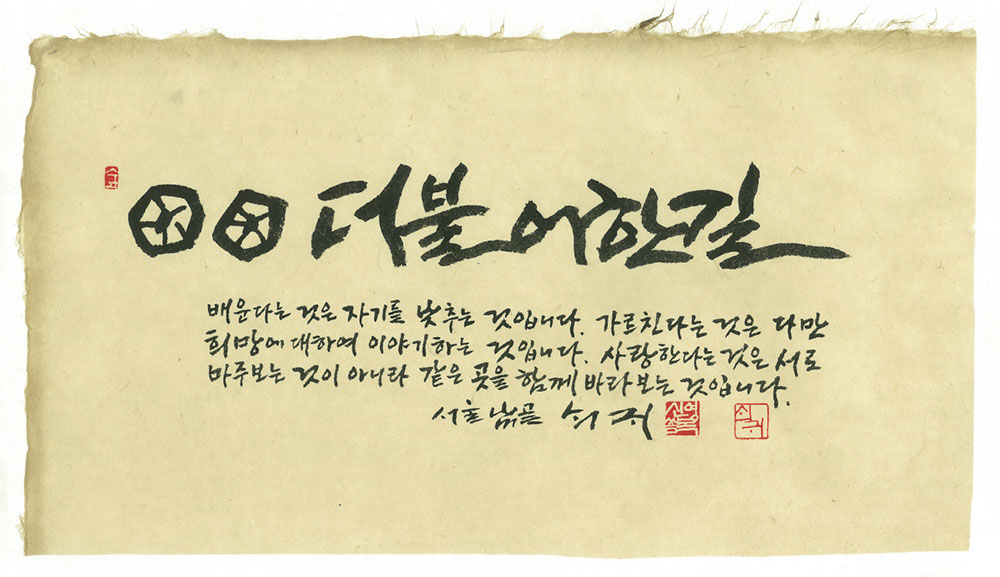 더불어한길
배운다는 것은 자기를 낮추는 것입니다. 가르친다는 것은 다만
희망에 대하여 이야기하는 것입니다. 사랑한다는 것은 서로
마주보는 것이 아니라 같은 곳을 함께 바라보는 것입니다.
쇠귀